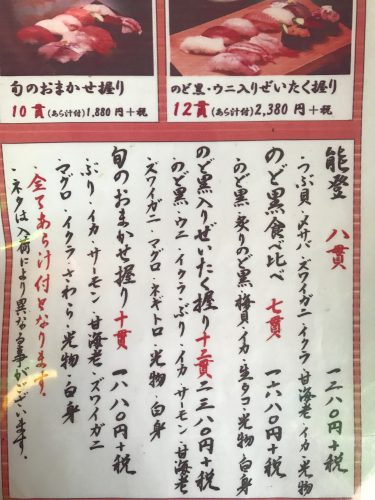 旬のおまかせ握り
10貫(あら汁付)1,880円+税
のど黒・ウニ入りぜいたく握り
12貫(あら汁付)2,380円+税
能登 八貫 一二八〇円+税
・つぶ貝・〆サバ・ズワイガニ・イクラ・甘海老・イカ・光物
のど黒食べ比べ 七貫 一六八〇円+税
のど黒・炙りのど黒・梅貝・イカ・生タコ・光物・白身
のど黒入りぜいたく握り 十二貫 二三八〇円+税
のど黒・ウニ・イクラ・ぶり・イカ・サーモン・甘海老
・ズワイガニ・マグロ・ネギトロ・光物・白身
旬のおまかせ握り 十貫 一八八〇円+税
ぶり・イカ・サーモン・甘海老・ズワイガニ
マグロ・イクラ・さわら・光物・白身
・全てあら汁付となります。
・ネタは入荷により異なる事がございます。